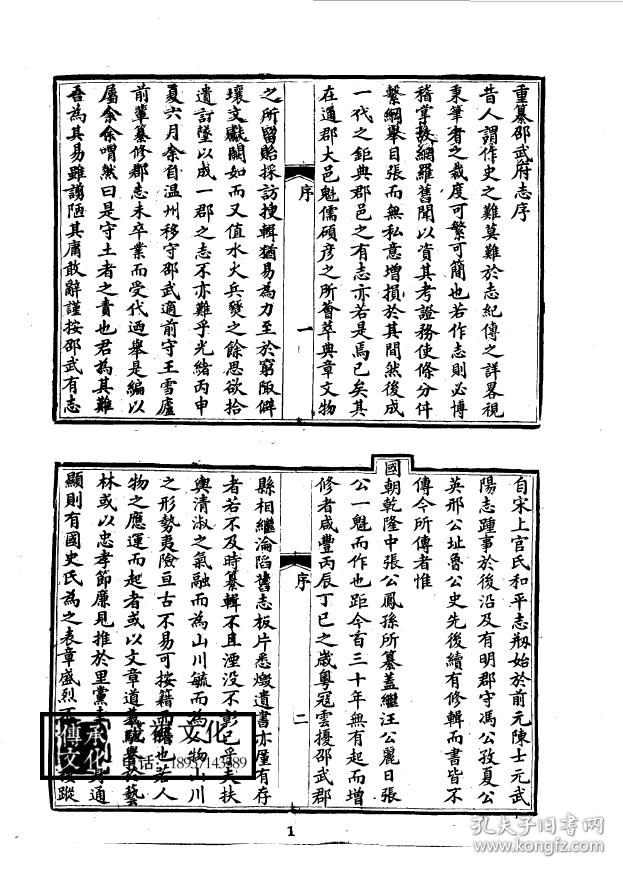 重纂邵武府志序
昔人謂作史之難莫難於志紀傳之詳畧視
秉筆者之裁度可繁可簡也若作志則必博
稽掌故網羅舊聞以資其考證務使條分件
繫綱舉目張而無私意增損於其間然後成
一代之鉅典郡邑之有志亦若是焉已矣其
在通郡大邑魁儒碩彥之所薈萃典章文物
序
一
之所留貽採訪搜輯猶易為力至於窮陬僻
壤文獻闕如而又值水火兵燹之餘思欲拾
遺訂墜以成一郡之志不亦難乎光緒丙申
夏六月余自温州移守邵武適前守王雪廬
前輩纂修郡志未卒業而受代迺舉是編以
屬余余喟然曰是守土者之責也君為其難
吾為其易雖譾陋其庸敢辭謹按邵武有志
自宋上官氏和平志剏始於前元陳士元武
陽志踵事於後沿及有明郡守馮公孜夏公
英邢公址魯公史先後續有修輯而書皆不
傳今所傳者惟
國朝乾隆中張公鳳孫所纂蓋繼汪公麗日張
公一魁而作也距今百三十年無有起而增
修者咸豐丙辰丁巳之歲粵寇雲擾邵武郡
序
二
縣相繼淪陷舊志板片悉燬遺書亦厪有存
者若不及時纂輯不且湮没不彰已乎夫扶
輿清淑之氣融而為山川毓而為人物山川
之形勢夷險亘古不易可按籍而稽也若人
物之應運而起者或以文章道義馳譽於藝
林或以忠孝節廉見推於里黨
通
顯則有國史氏為之表章盛烈
蹤
傳承文化
文化
電话：18937143989
1
孔夫子旧书网
www.kongfz.com